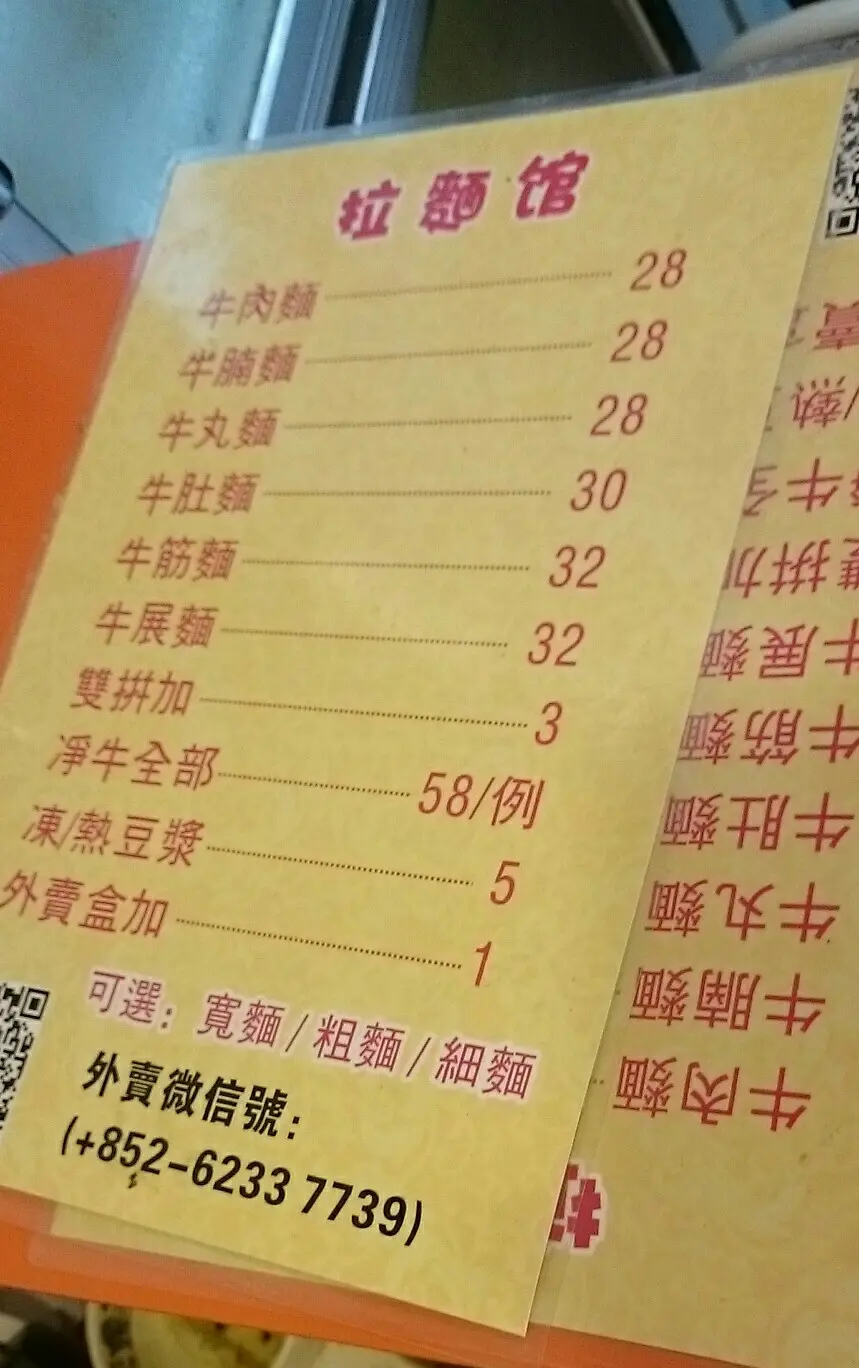 拉麵馆
牛肉麵 28
牛腩麵 28
牛丸麵 28
牛肚麵 30
牛筋麵 32
牛展麵 32
雙拼加 3
凈牛全部 58/例
凍/熱豆漿 5
外賣盒加 1
可選：寬麵/粗麵/細麵
外賣微信號：
(+852-6233 7739)
牛肉麵
牛腩麵
牛丸麵
牛肚麵
牛筋麵
牛展麵
雙拼加